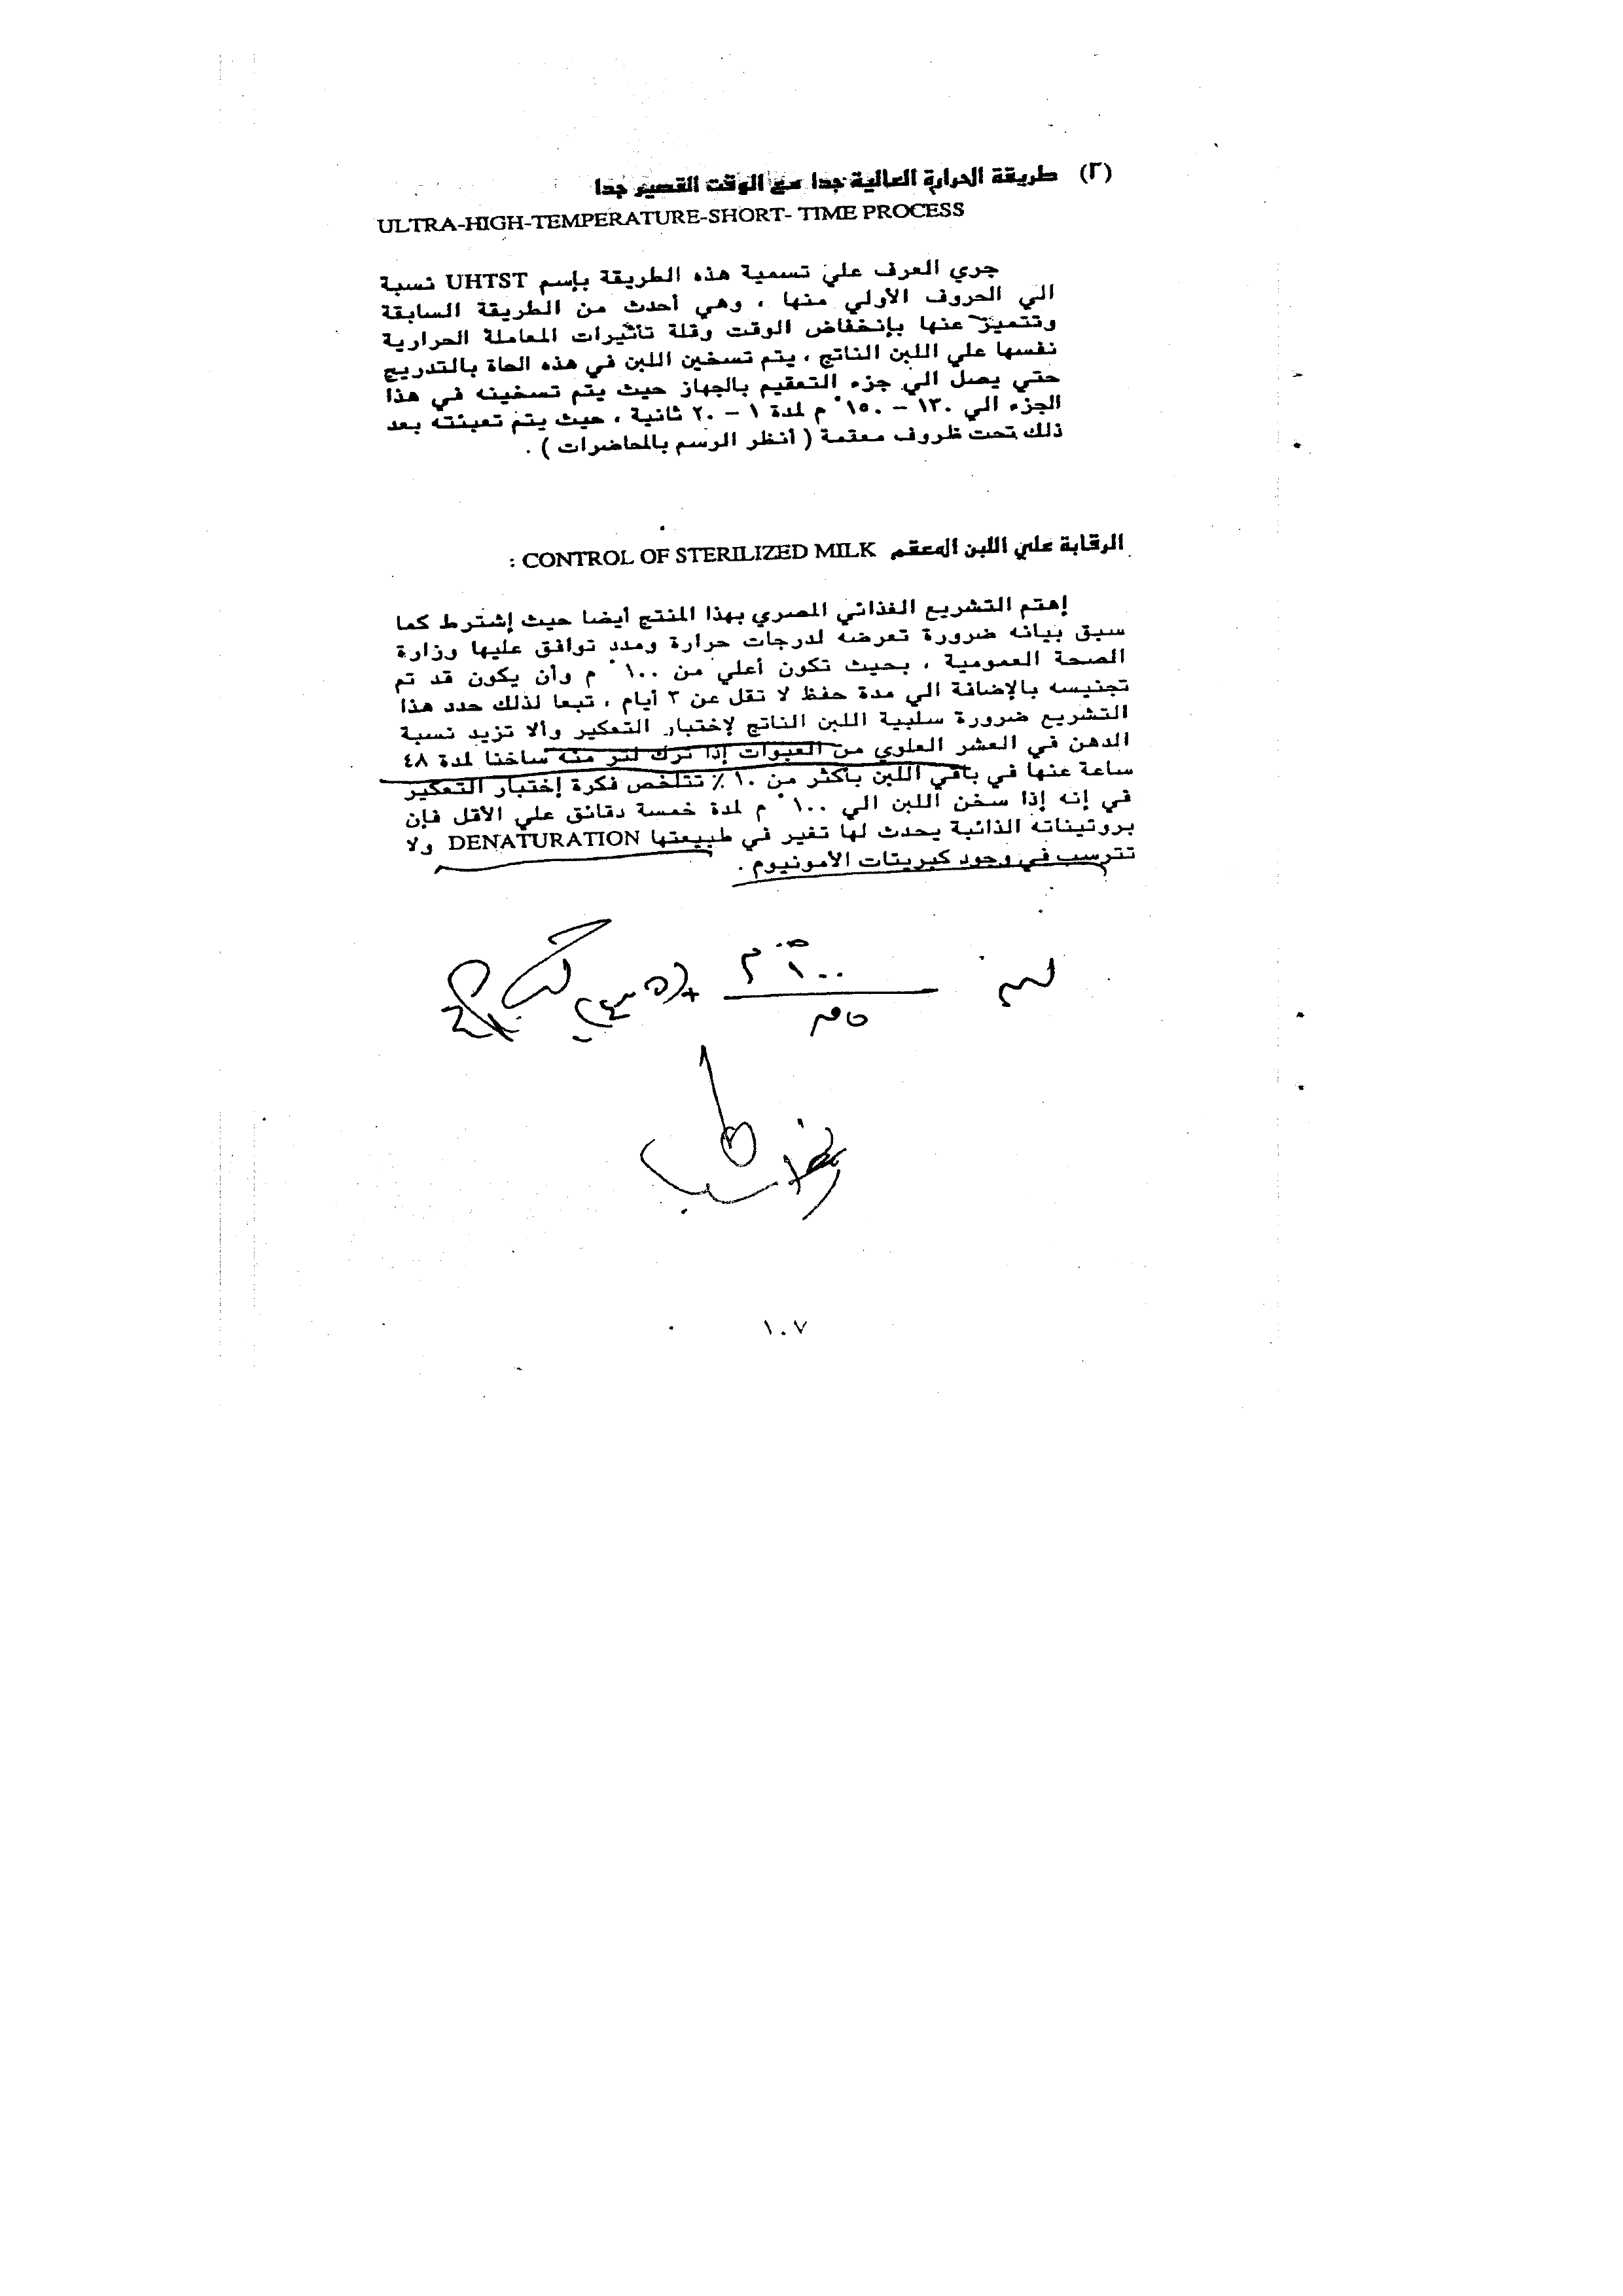 (٢) طريقة الحرارة العالية جدا مع الوقت القصير جدا
ULTRA-HIGH-TEMPERATURE-SHORT- TIME PROCESS
جري العرف علي تسمية هذه الطريقة بإسم UHTST نسبة
الي الحروف الأولي منها ، وهي أحدث من الطريقة السابقة
وتتميز عنها بإنخفاض الوقت وقلة تأثيرات المعاملة الحرارية
نفسها علي اللبن الناتج ، يتم تسخين اللبن في هذه الحاة بالتدريج
حتي يصل الي جزء التعقيم بالجهاز حيث يتم تسخينه في هذا
الجزء الي ١٣٠ – ١٥٠ ْ م لمدة ١ – ٢٠ ثانية ، حيث يتم تعبئته بعد
ذلك تحت ظروف معقمة ( أنظر الرسم بالمحاضرات ) .
الرقابة علي اللبن المعقم CONTROL OF STERILIZED MILK :
إهتم التشريع الغذائي المصري بهذا المنتج أيضا حيث إشترط كما
سبق بيانه ضرورة تعرضه لدرجات حرارة ومدد توافق عليها وزارة
الصحة العمومية ، بحيث تكون أعلي من ١٠٠ ْ م وأن يكون قد تم
تجنيسه بالإضافة الي مدة حفظ لا تقل عن ٣ أيام ، تبعا لذلك حدد هذا
التشريع ضرورة سلبية اللبن الناتج لإختبار التعكير وألا تزيد نسبة
الدهن في العشر العلوي من العبوات إذا ترك لتر منه ساخنا لمدة ٤٨
ساعة عنها في باقي اللبن بأكثر من ١٠ ٪ تتلخص فكرة إختبار التعكير
في إنه إذا سخن اللبن الي ١٠٠ ْ م لمدة خمسة دقائق علي الأقل فإن
بروتيناته الذائبة يحدث لها تغير في طبيعتها DENATURATION ولا
تترسب في وجود كبريتات الأمونيوم .
لبن ١٠٠ ْ م
١٠٧